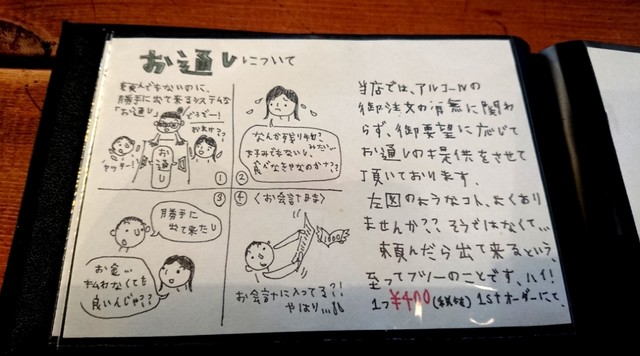 お通しについて
頼んでもないのに、
勝手に出て来るシステムな
「お通し」
どうぞー!
おまけ??
ヤッター!
お通し
①
②
なんか残り物?
みたい…
好みでもないし、
食べなきゃなのか???
③
勝手に
出て来たし
お金…
払わなくても
良いんじゃ??
④〈お会計時〉
お会計に入ってる?!
やはり…
当店では、アルコールの
御注文の有無に関わ
らず、御要望に応じて
お通しの提供をさせて
頂いております。
左図のようなコト、よくあり
ませんか?? そうではなくて…
頼んだら出て来るという、
至ってフツーのことです、ハイ!
1つ¥400(税抜) 1stオーダーにて。